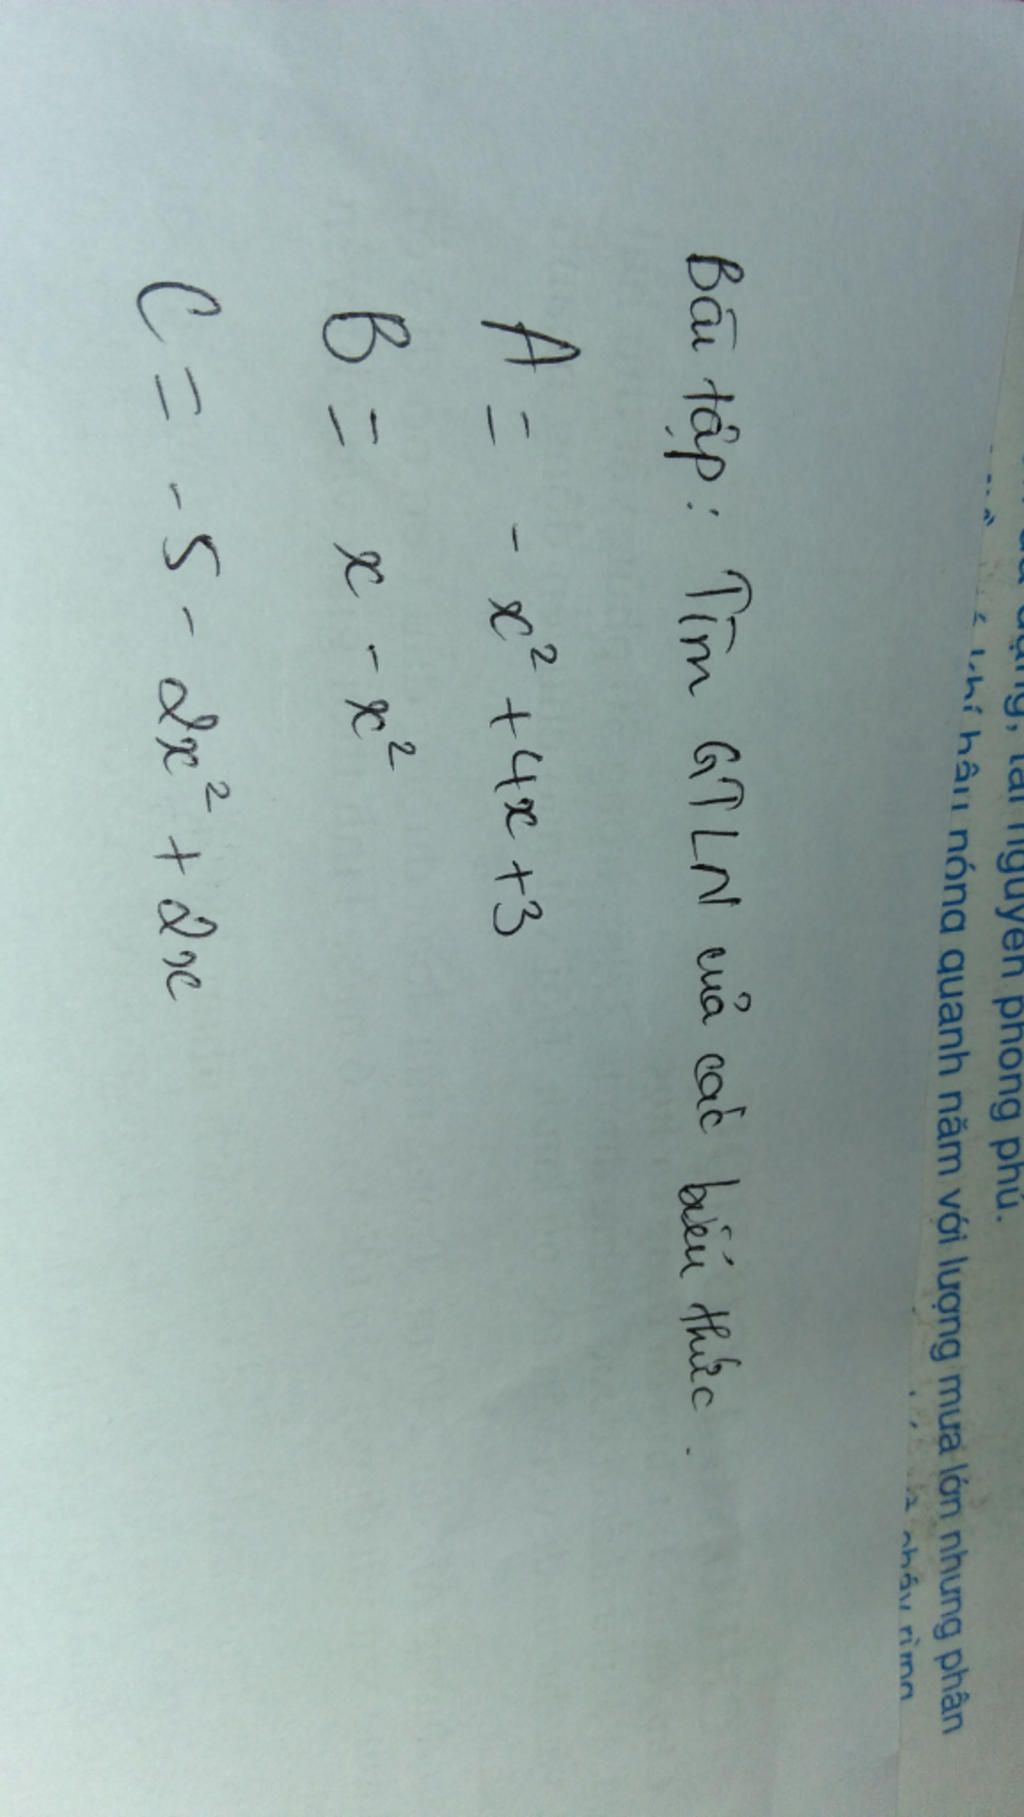 tài nguyên phong phú.
nóng quanh năm với lượng mưa lớn nhưng phân
Bài tập: Tìm GTLN của các biểu thức.
A = - x² + 4x + 3
B = x - x²
C = - 5 - 2x² + 2x